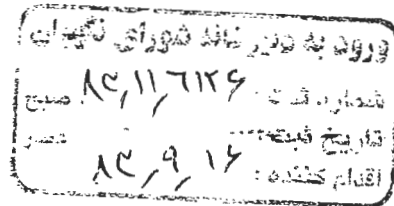 ورود به دبیر خانه شورای نگهبان
شماره ثبت: ۸۴,۱۱,۶۱۲۶ صبح
تاریخ ثبت: عصر
اقدام کننده: ۸۴,۹,۱۶